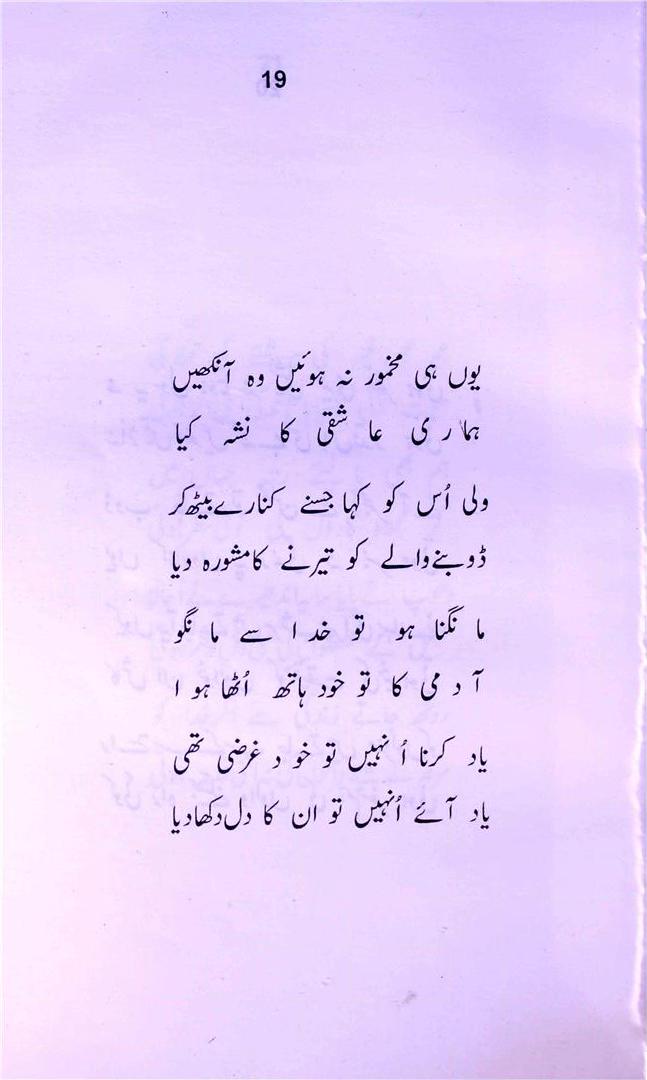 19
یوں ہی مخمور نہ ہوئیں وہ آنکھیں
ہماری عاشقی کا نشہ کیا
ولی اُس کو کہا جسنے کنارے بیٹھ کر
ڈوبنے والے کو تیرنے کا مشورہ دیا
مانگنا ہو تو خدا سے مانگو
آدمی کا تو خود ہاتھ اُٹھا ہوا
یاد کرنا اُنہیں تو خود غرضی تھی
یاد آئے اُنہیں تو ان کا دل دکھا دیا